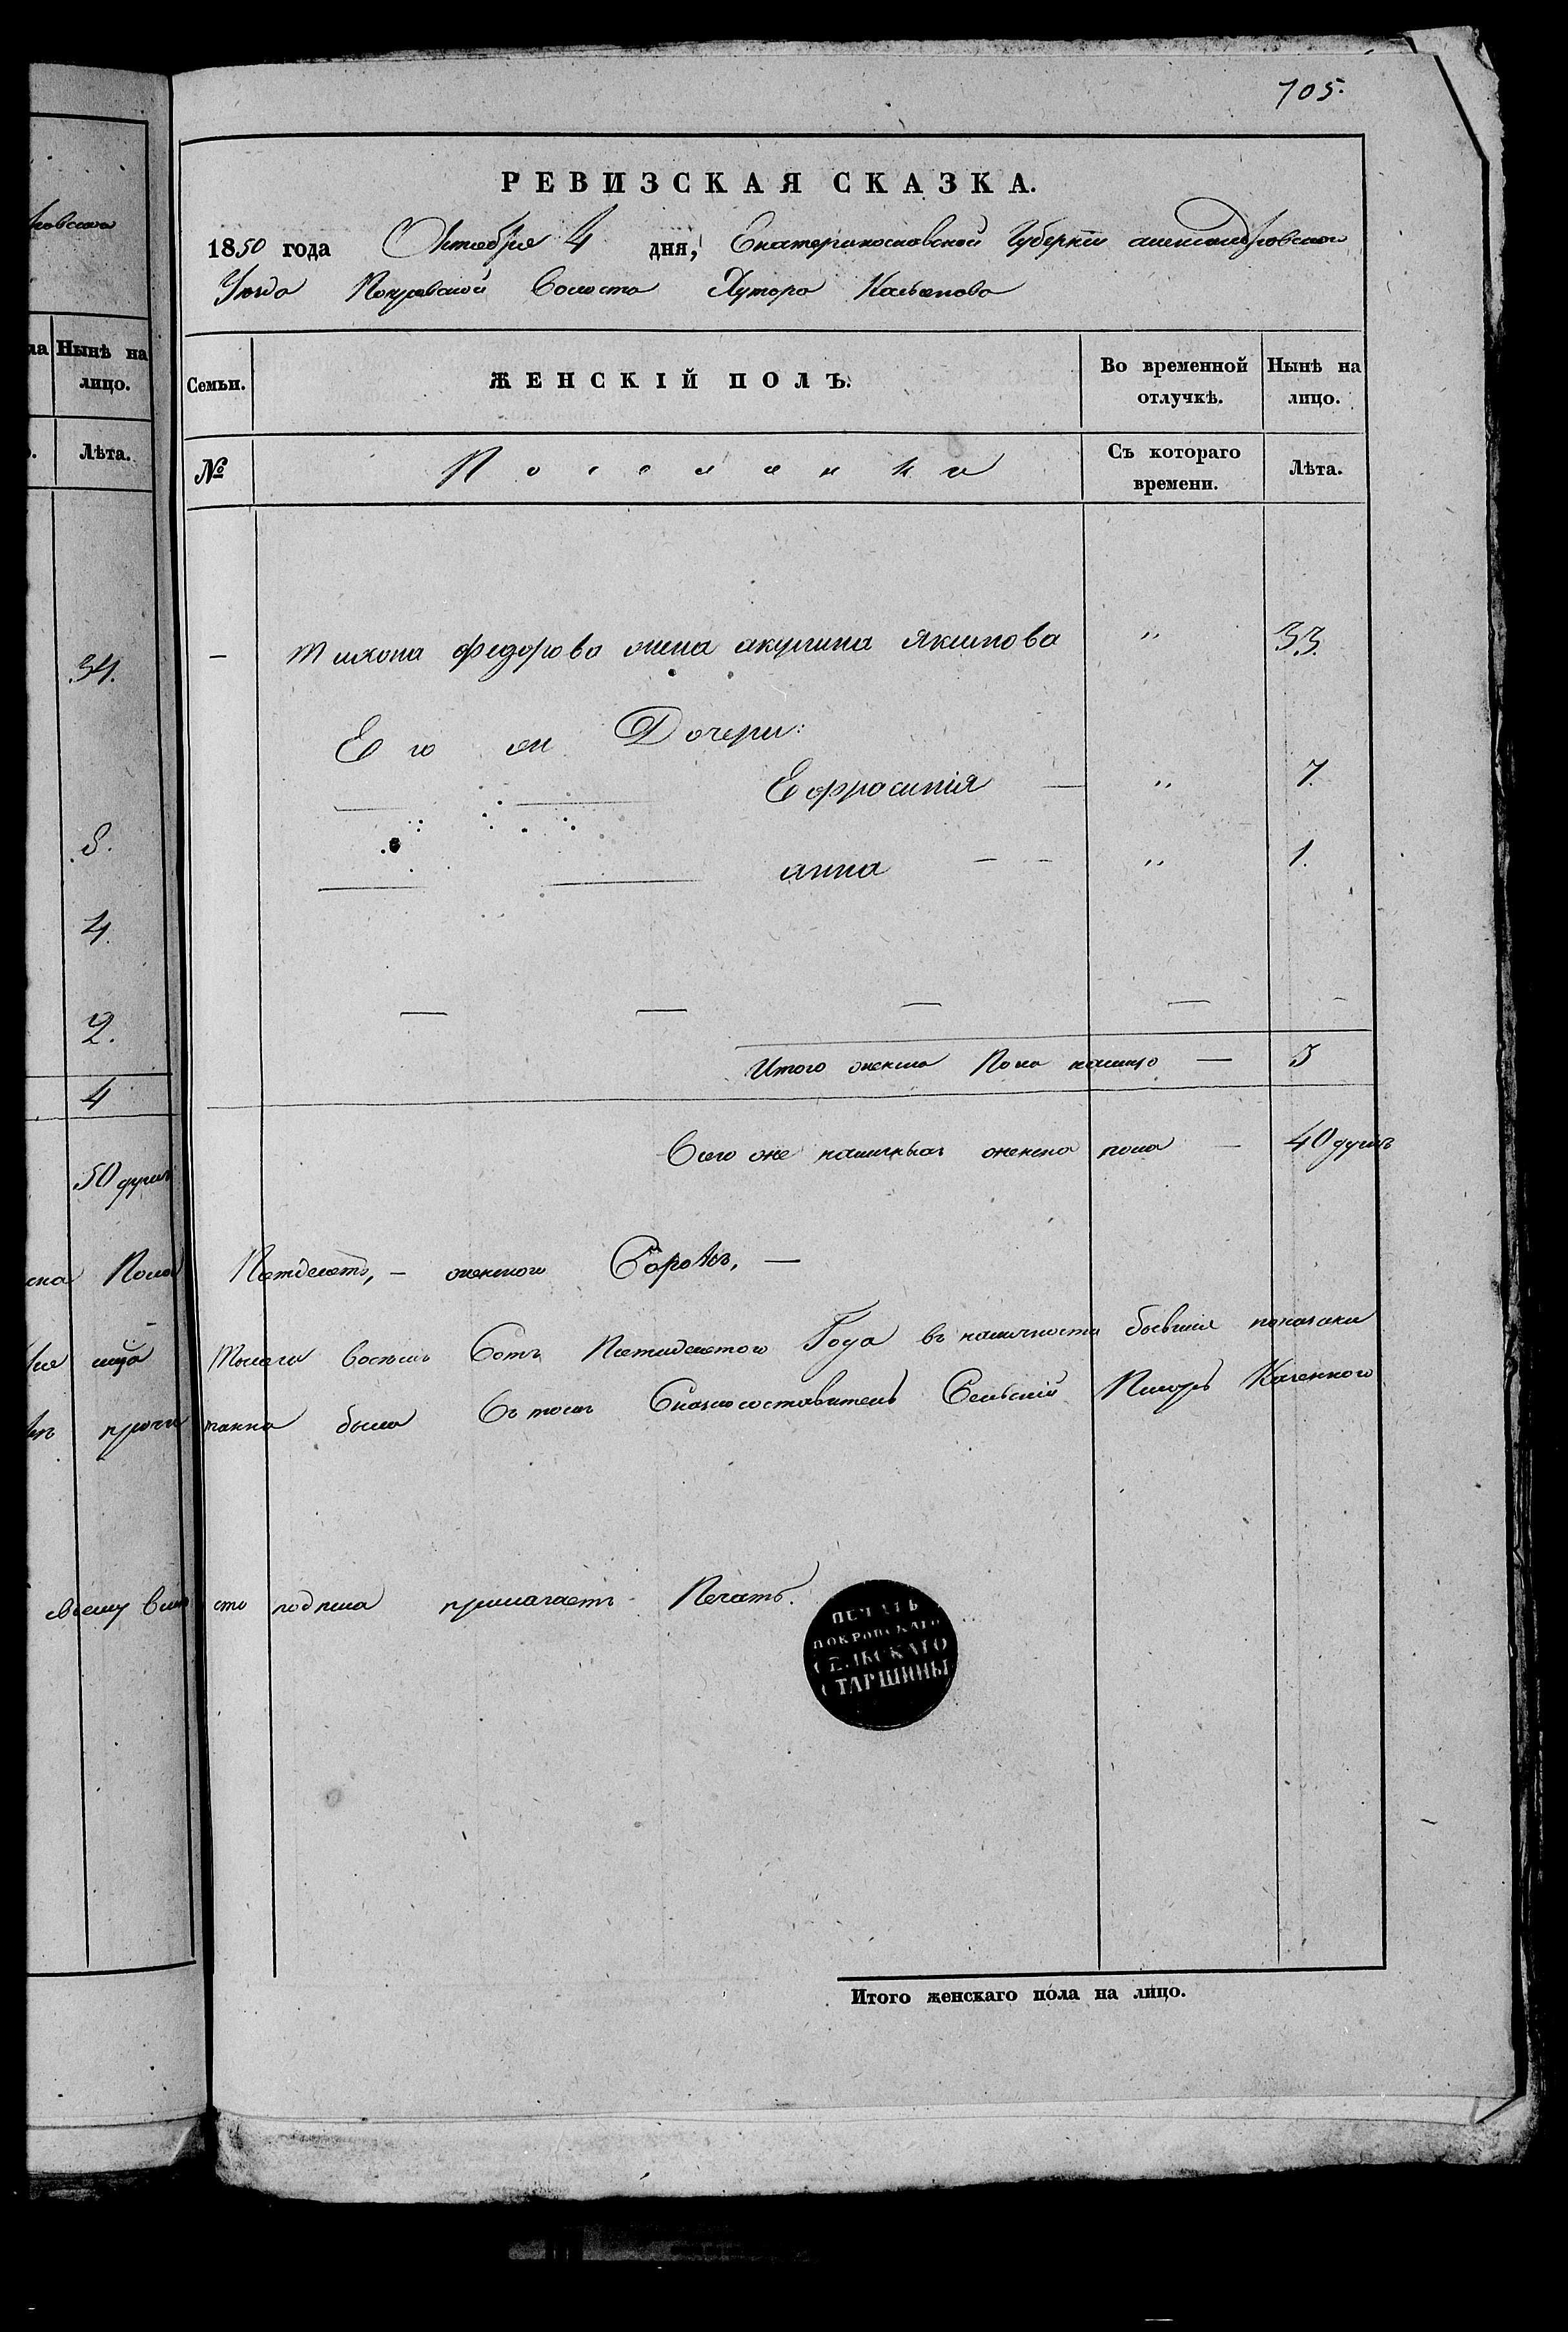 705.
РЕВИЗСКАЯ СКАЗКА.
1850 года Октября 4 дня, Екатеринославской Губернии александровского
Уезда Покровской Волости Хутора
Семьи.
ЖЕНСКІЙ ПОЛЪ.
Во временной отлучкѣ.
Нынѣ на лицо.
№
Поселянки
Съ котораго времени.
Лѣта.
— Тихона федорова жена акулина Якимова " 33.
Его ен Дочери:
Ефросинія — " 7.
анна — — " 1.
Итого женска Пола налицо — 3
Всего же наличныхъ женска пола — 40 душъ
ска Пола Пятдесятъ, — женского Сорокъ, —
лица Тысяча восемь Сотъ Пятидесятого Года въ наличности бывшия показаны
прочитанна была Въ томъ Сказкосоставитель Сельскій
своему вместо подписа прилагаетъ Печать.
ПЕЧАТЬ
ПОКРОВСКАГО
СЕЛЬСКАГО
СТАРШИНЫ
Итого женскаго пола на лицо.
Нынѣ на
лицо.
Лѣта.
34.
8.
4.
2.
4
50 душъ